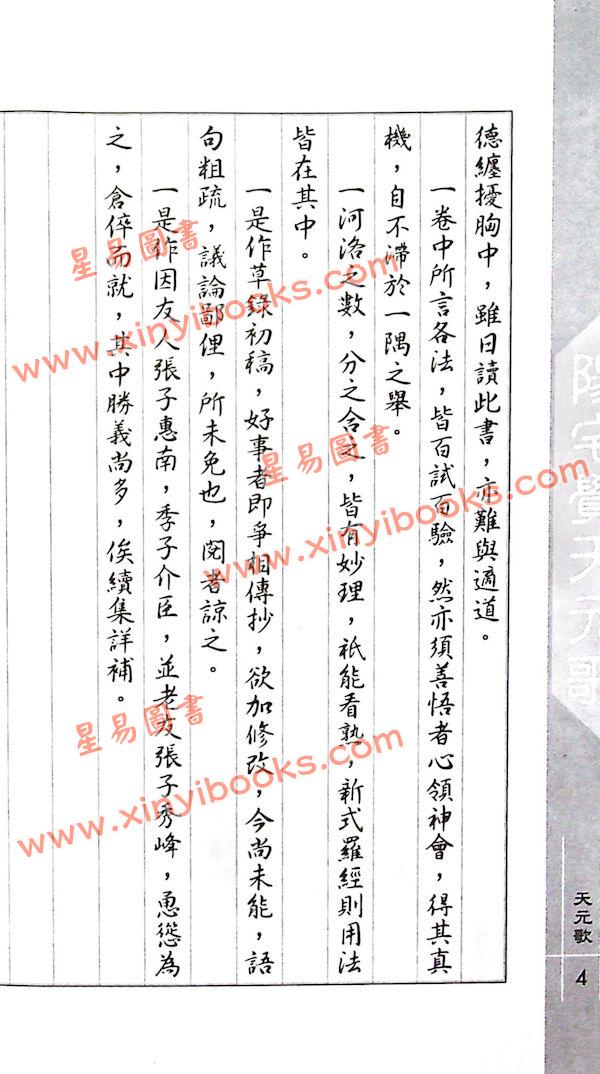 德纏擾胸中，雖日讀此書，亦難與適道。
一卷中所言各法，皆百試百驗，然亦須善悟者心領神會，得其真
機，自不滯於一隅之舉。
一河洛之數，分之合之，皆有妙理，祇能看熟，新式羅經則用法
皆在其中。
一是作草錄初稿，好事者即爭相傳抄，欲加修改，今尚未能，語
句粗疏，議論鄙俚，所未免也，閱者諒之。
一是作因友人張子惠南，季子介臣，並老友張子秀峰，慂慫為
之，倉倅而就，其中勝義尚多，俟續集詳補。
陽宅覺天元歌
天元歌
4
星易圖書
www.xinyibooks.com
星易圖書
www.xinyibooks.com
星易圖書
www.xinyibooks.com